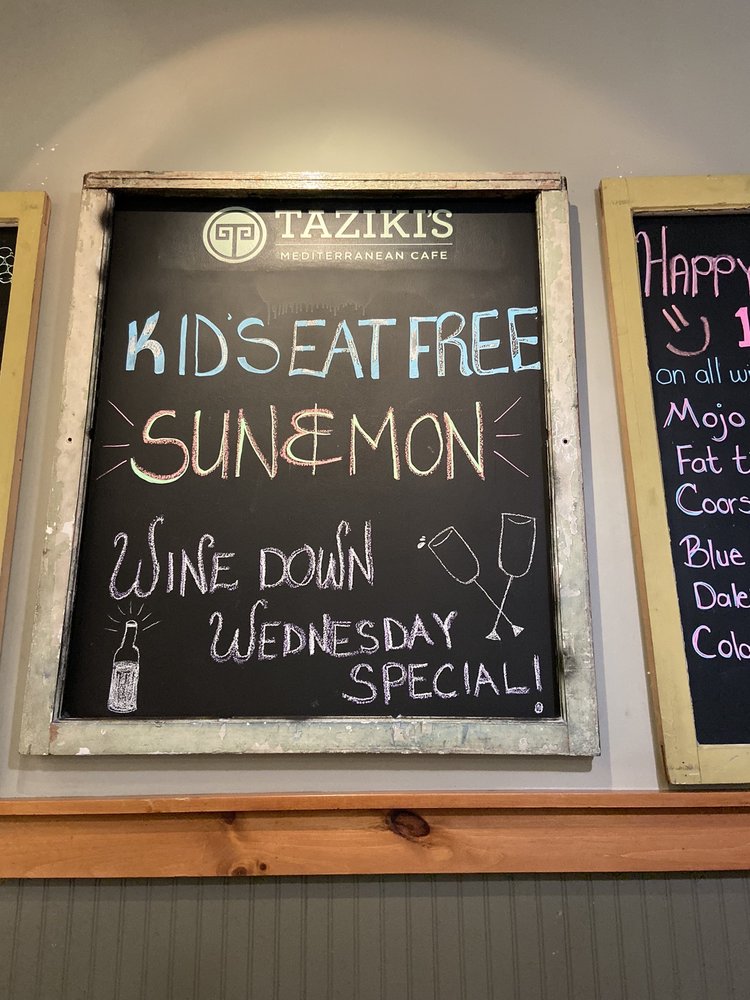 TAZIKI'S
MEDITERRANEAN CAFE
KID'S EAT FREE
SUN & MON
WINE DOWN
WEDNESDAY
SPECIAL!
HAPPY
on all
Mojo
Fat
Coors
Blue